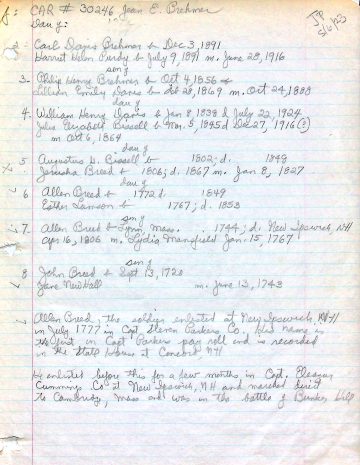 CAR # 30246, Jean E. Prehmer
dau of:
2. Carl Davis Prehmer b Dec 3, 1891
Harriet Helen Purdy b July 9, 1891 m. June 28, 1916
son of
3. Philip Henry Prehmer b Oct 4, 1856
Lillian Emily Davis b Feb 28, 1869 m. Oct 24, 1888
dau of
4. William Henry Davis b Jan 8, 1838 d July 22, 1924
Julia Elizabeth Bissell b Mar. 5, 1845 d Dec 27, 1916 (?)
m Oct 6, 1864
dau of
5 Augustus S. Bissell b 1802; d. 1849
Jerusha Breed b 1806; d. 1867 m. Jan 8, 1827
dau of
6 Allen Breed b 1772 d 1849
Esther Lamson b 1767; d. 1853
son of
7. Allen Breed b Lynn, Mass. 1744; d. New Ipswich, NH
Apr 16, 1806 m. Lydia Mansfield Jan. 15, 1767
son of
8 John Breed b Sept 13, 1720
Jane Newhall m. June 13, 1743
Allen Breed, the soldier enlisted at New Ipswich, NH
in July 1777 in Capt. Parkers Co., his name is
the first in Capt Parkers pay roll and is recorded
in the State House at Concord NH
He enlisted before this for a few months in Capt.
Cummings Co at New Ipswich, NH and marched direct
to Cambridge, Mass and was in the battle of Bunker Hill